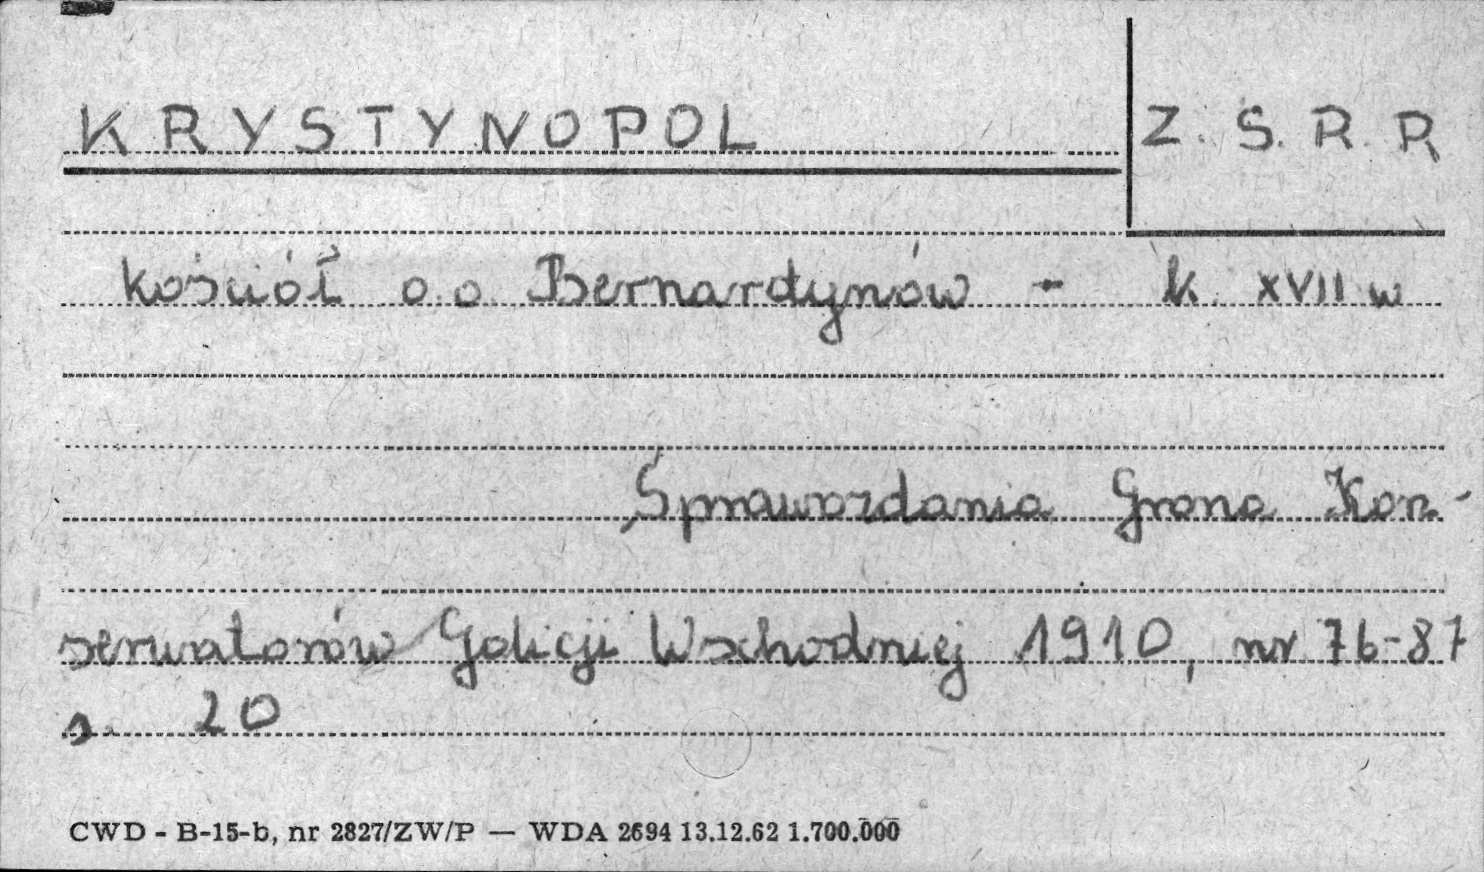 KRYSTYNOPOL
Z.S.R.R
kościół o.o. Bernardynów - k. XVII w
Sprawozdania Grona Kon-
serwatorów Galicji Wschodniej 1910, nr 76-87
s. 20
CWD - B-15-b, nr 2827/ZW/P — WDA 2694 13.12.62 1.700.000